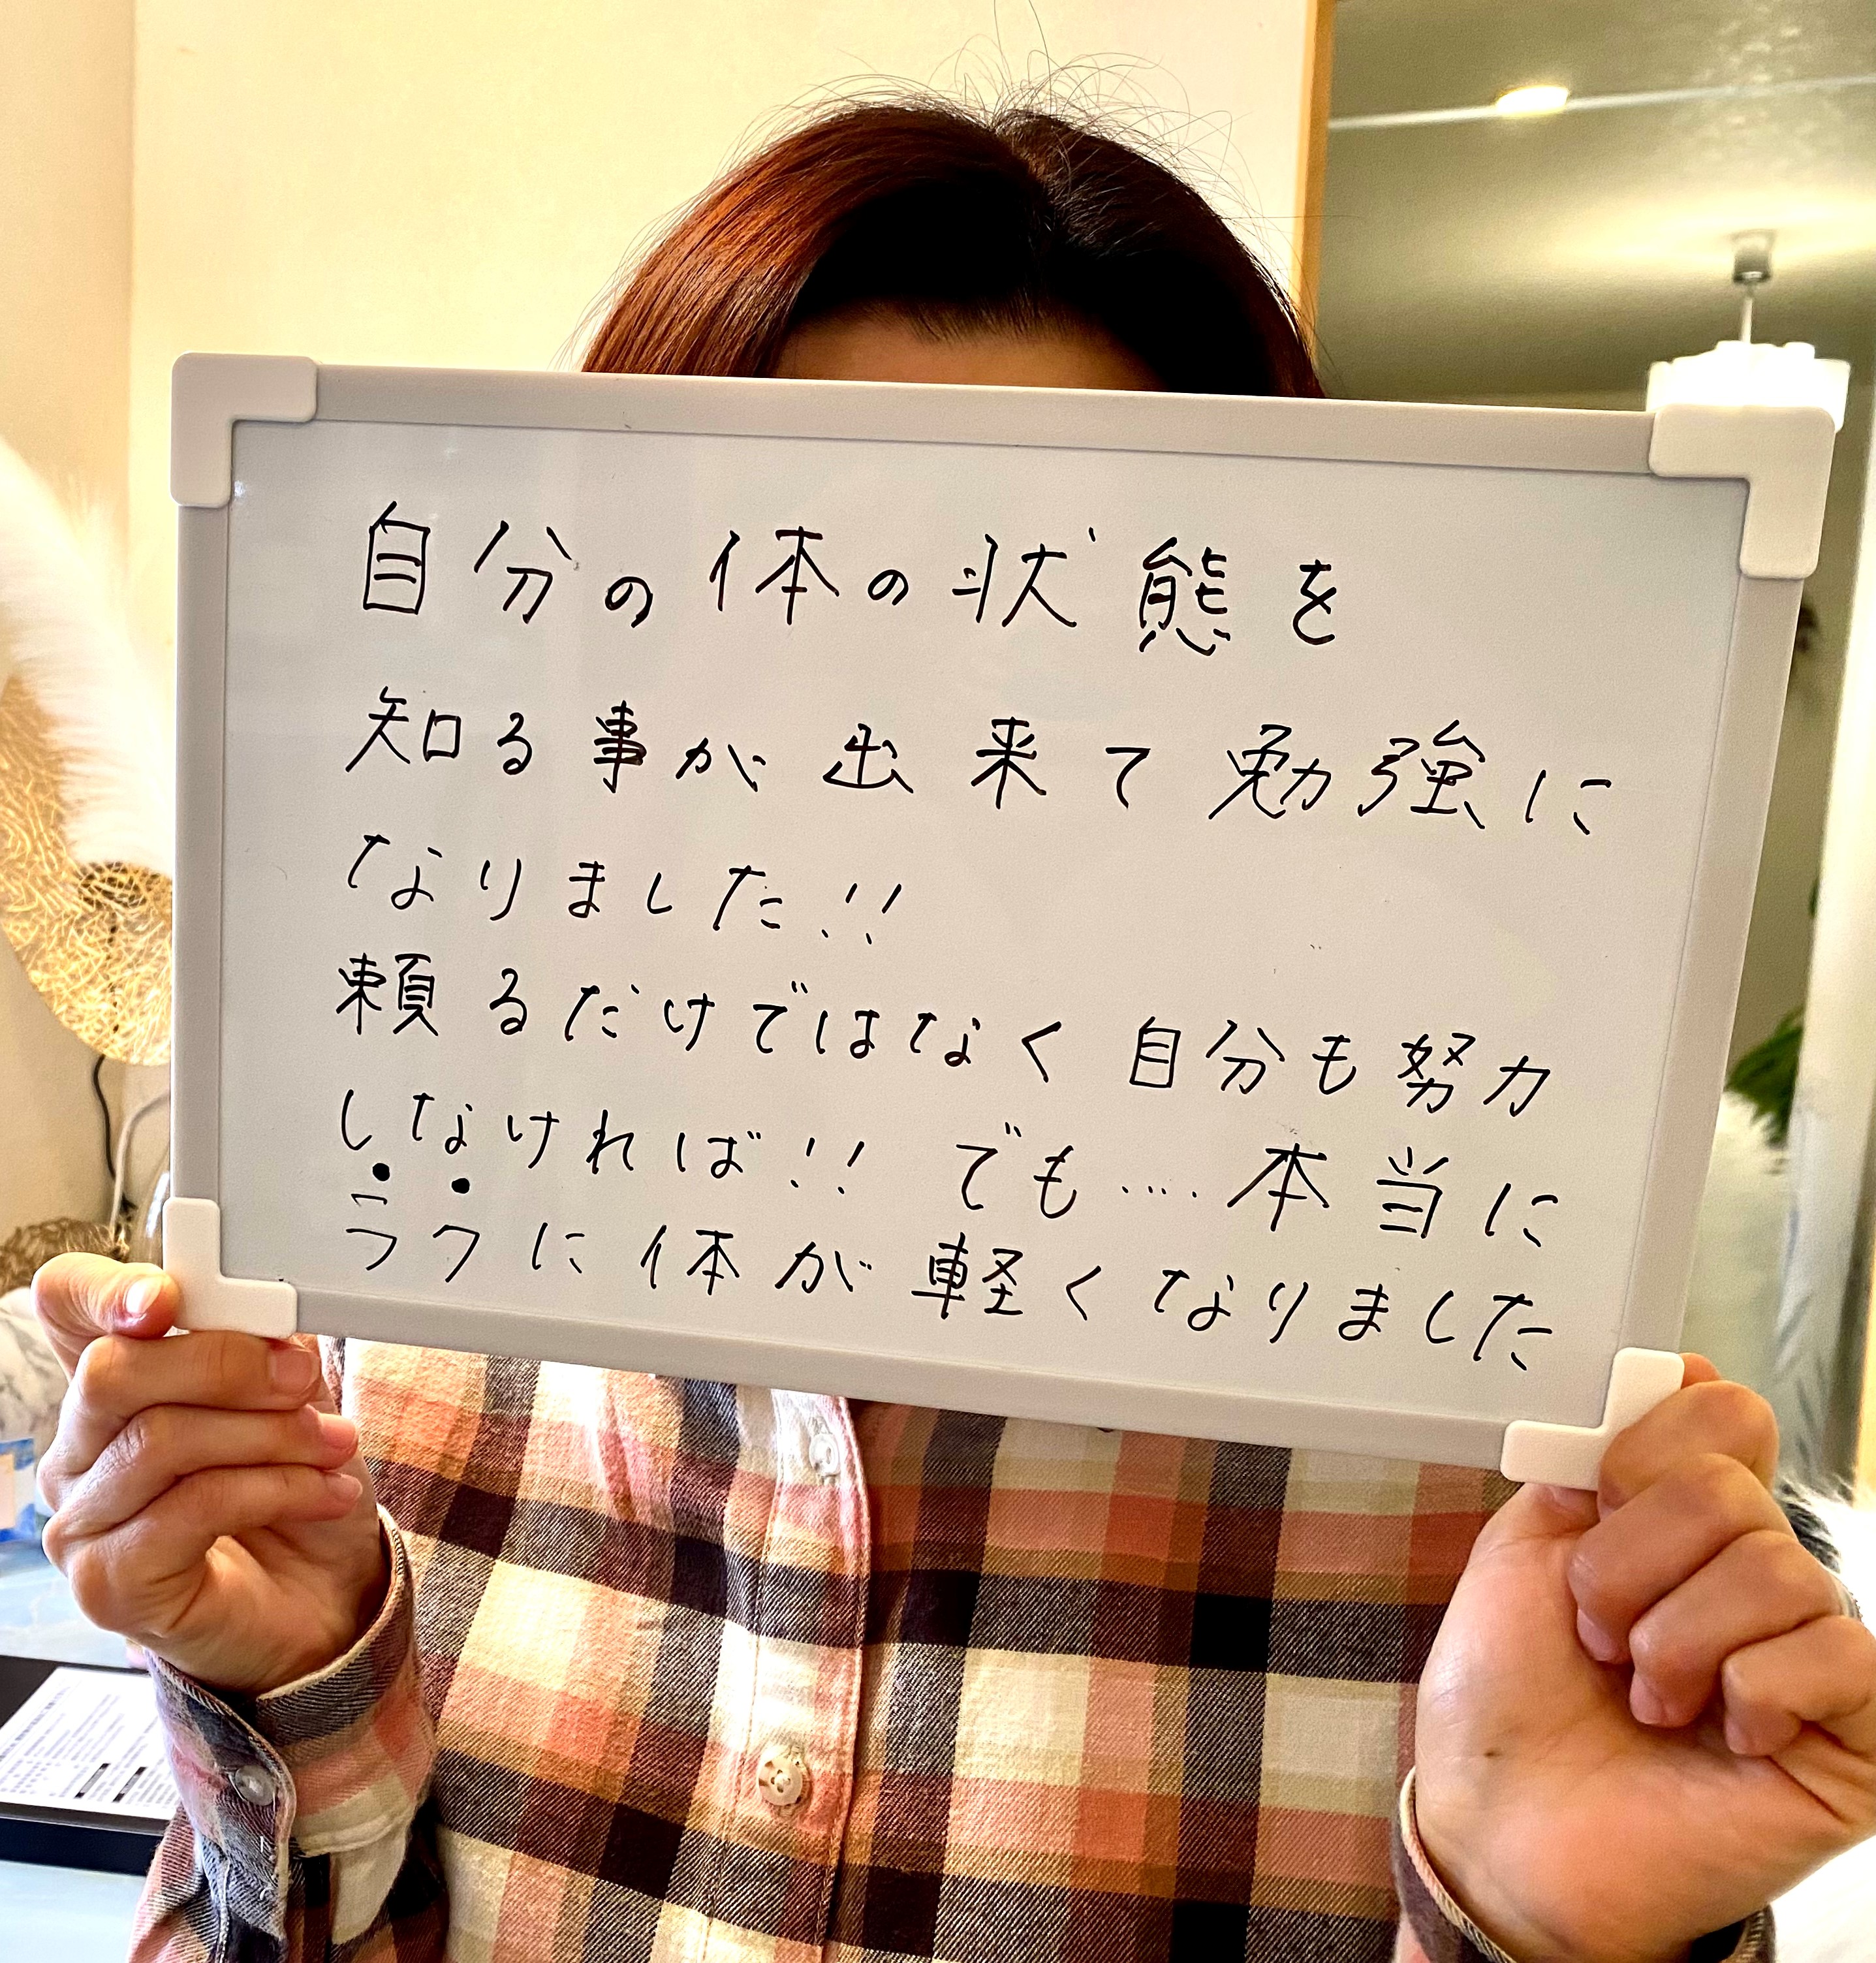 自分の体の状態を
知る事が出来て勉強に
なりました!!
頼るだけではなく自分も努力
しなければ!! でも....本当に
ラクに体が軽くなりました